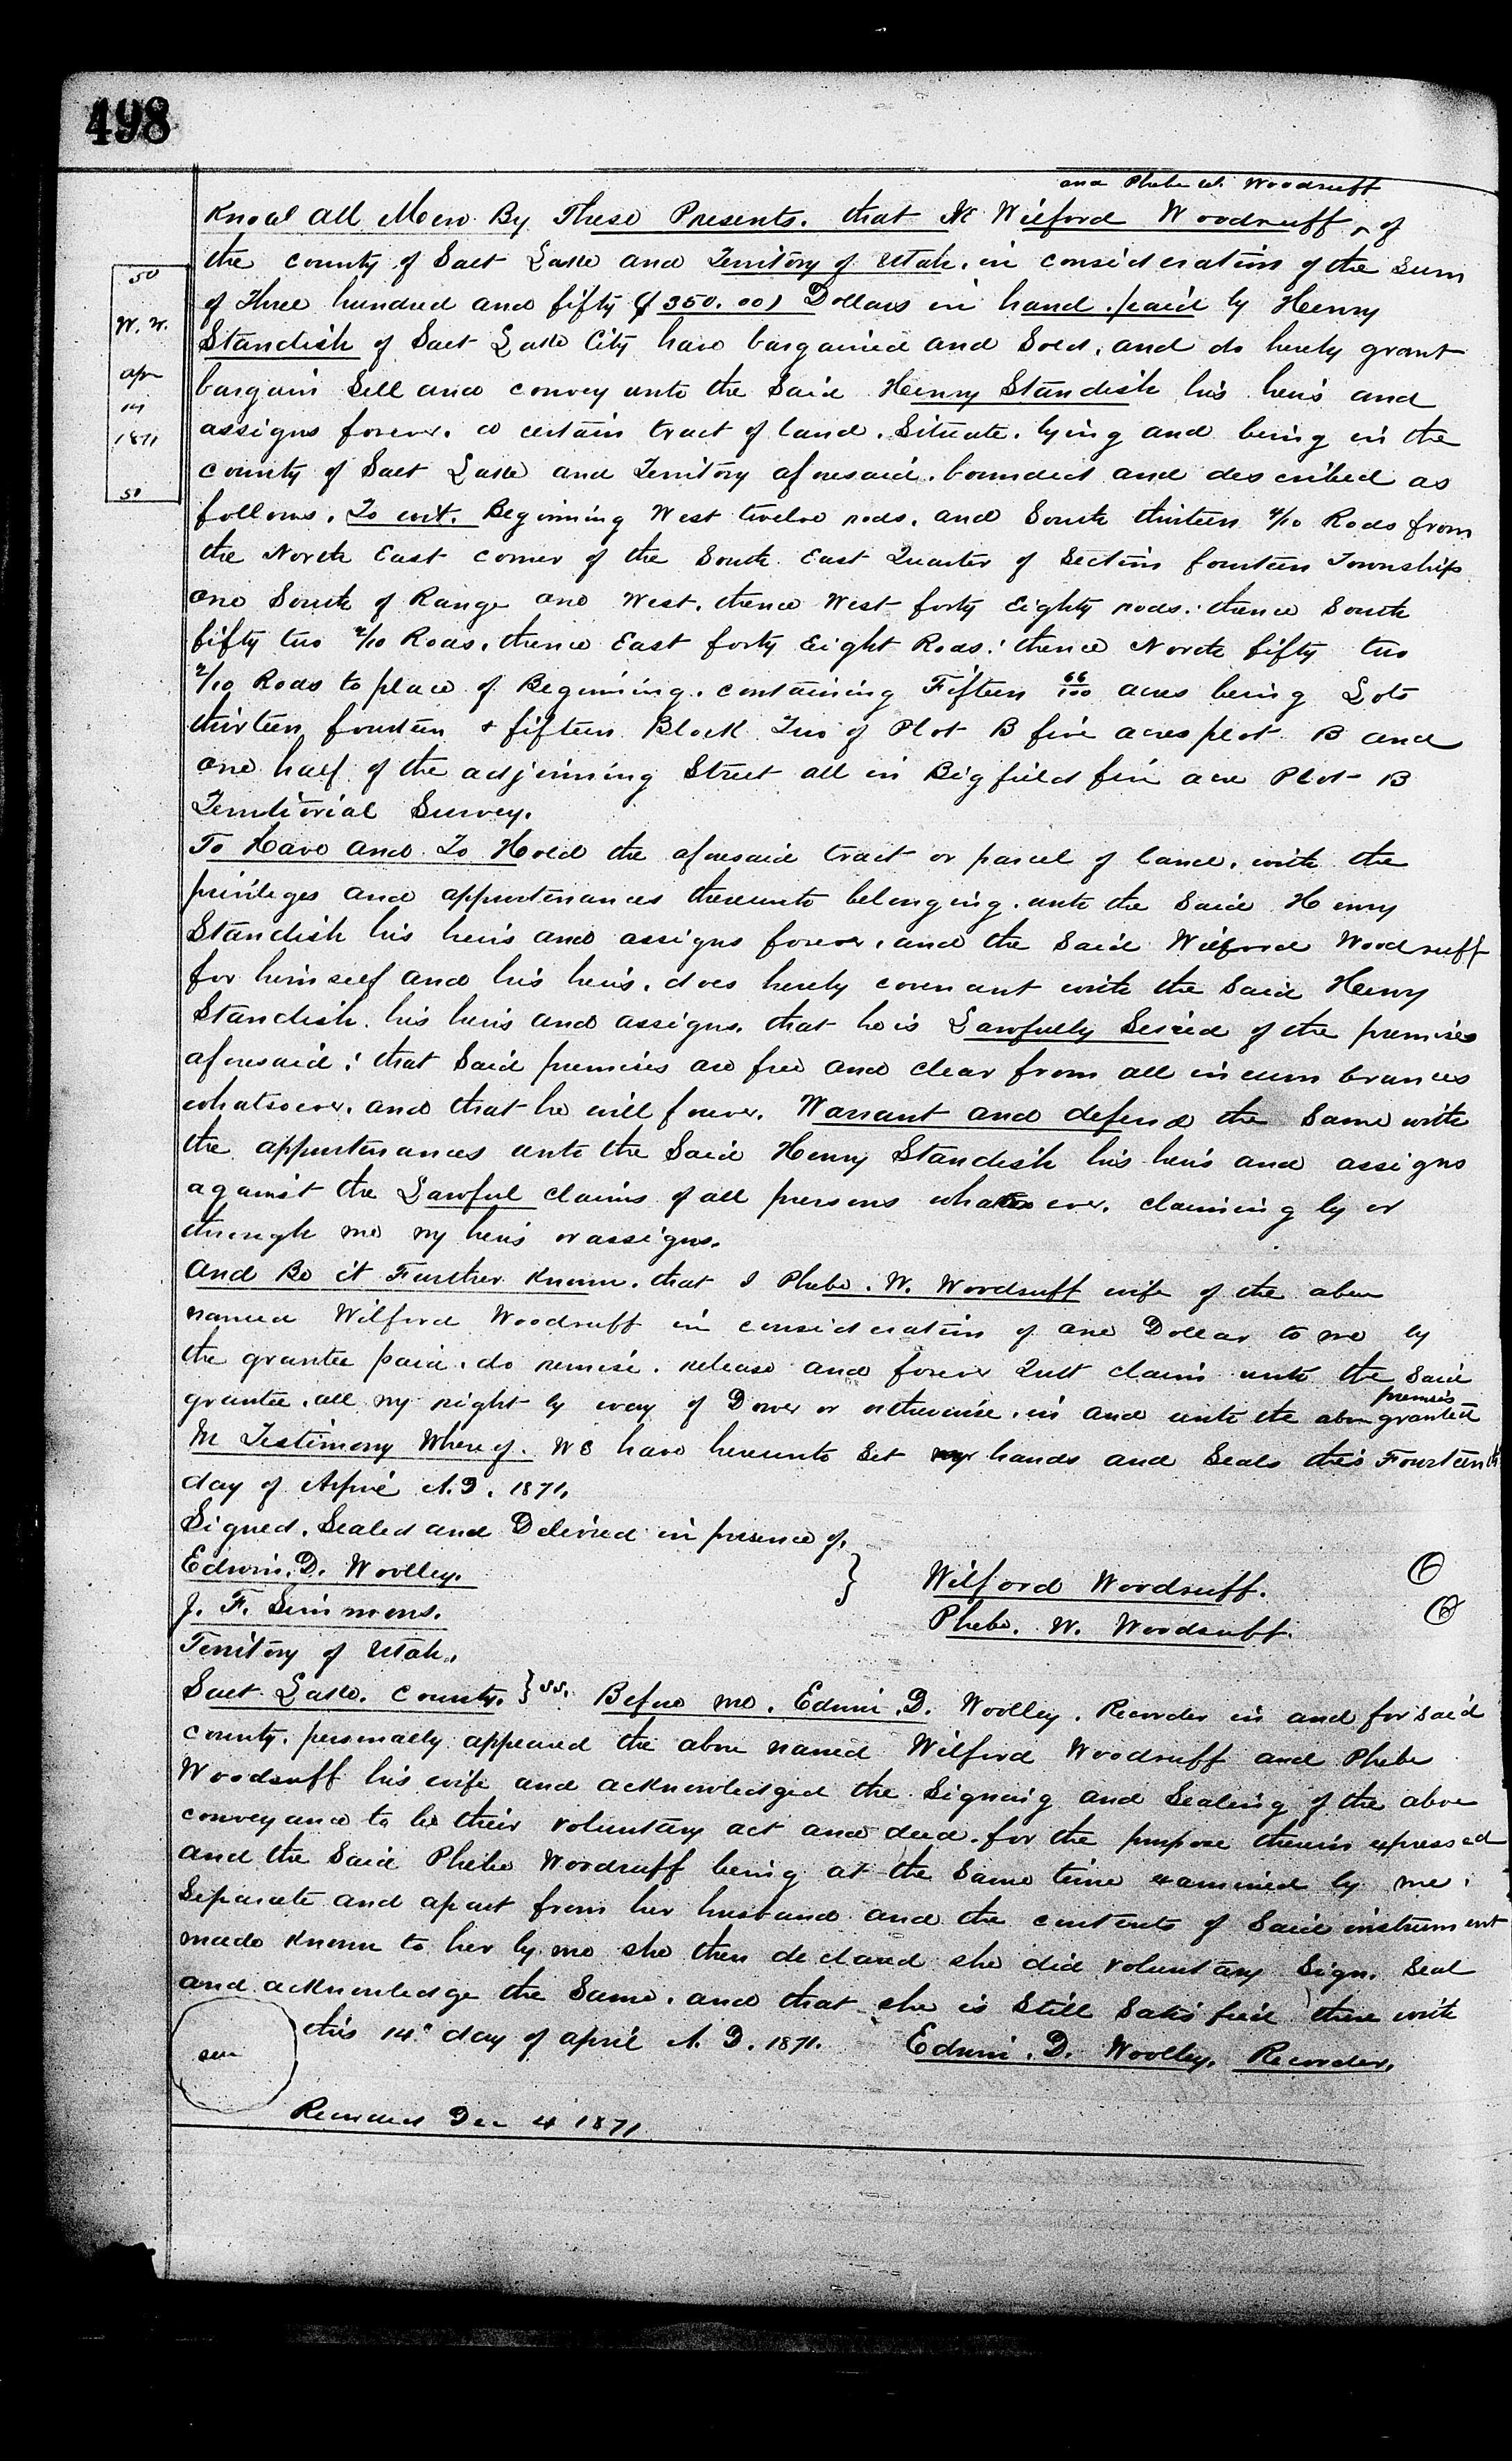 498
and Phebe W. Woodruff
Know all Men By These Presents. that We Wilford Woodruff ^ of
the county of Salt Lake and Territory of Utah. in consideration of the sum
of Three hundred and fifty ($350.00) Dollars in hand paid by Henry
Standish of Salt Lake City have bargained and Sold, and do hereby grant
bargain Sell and convey unto the Said Henry Standish his heirs and
assigns forever. a certain tract of land. Situate. lying and being in the
county of Salt Lake and Territory aforesaid. bounded and described as
follows. To wit. Beginning West twelve rods. and South thirteen 4/10 Rods from
the North East corner of the South East Quarter of Section fourteen Township
one South of Range one West. thence West forty Eighty rods: thence South
fifty two 2/10 Rods. thence East forty Eight Rods: thence North fifty two
2/10 Rods to place of Beginning. containing Fifteen 66/100 acres being Lots
thirteen fourteen & fifteen Block Two of Plot B five acres plot B and
one half of the adjoining Street all in Big field five acre Plot B
Territorial Survey.
To Have and To Hold the aforesaid tract or parcel of land. with the
privileges and appurtenances thereunto belonging. unto the Said Henry
Standish his heirs and assigns forever. and the Said Wilford Woodruff
for himself and his heirs. does hereby covenant with the Said Henry
Standish. his heirs and assigns. that he is Lawfully Seized of the premises
aforesaid: that Said premises are free and clear from all incumbrances
whatsoever. and that he will forever. Warrant and defend the Same with
the appurtenances unto the Said Henry Standish his heirs and assigns
against the Lawful claims of all persons whatsoever. claiming by or
through me my heirs or assigns.
And Be it Further Known. that I Phebe. W. Woodruff wife of the above
named Wilford Woodruff in consideration of one Dollar to me by
the grantee paid. do remise. release and forever Quit claim unto the Said
grantee. all my right by way of Dower or otherwise. in and unto the above granted
premises
In Testimony Whereof. We have hereunto Set my hands and Seals this Fourteenth
day of April A.D. 1871.
Signed. Sealed and Delivred in presence of.
Edwin. D. Woolley. } Wilford Woodruff.
J. F. Simmons. Phebe. W. Woodruff.
Territory of Utah.
Salt Lake. County. } ss. Before me. Edwin. D. Woolley. Recorder in and for said
county. personally appeared the above named Wilford Woodruff and Phebe
Woodruff his wife and acknowledged the Signing and Sealing of the above
conveyance to be their voluntary act and deed. for the purpose therein expressed
and the Said Phebe Woodruff being at the Same time examined by me.
Separate and apart from her husband and the contents of Said instrument
made Known to her by me she then declared she did voluntary Sign. Seal
and acknowledge the Same. and that she is Still Satisfied there with
this 14" day of april A. D. 1871. Edwin. D. Woolley. Recorder.
Recorded Dec 4 1871
50
W. W.
apr
14
1871
50